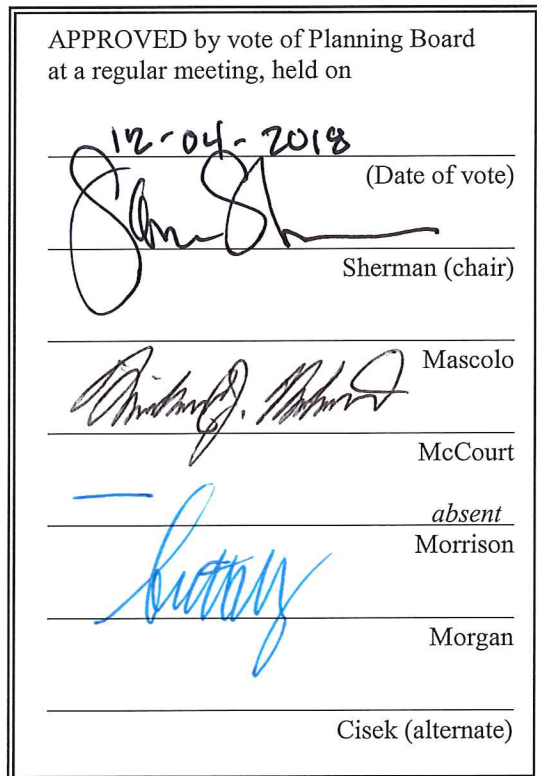 APPROVED by vote of Planning Board
at a regular meeting, held on
12-04-2018
(Date of vote)
Sherman (chair)
Mascolo
McCourt
absent
Morrison
Morgan
Cisek (alternate)